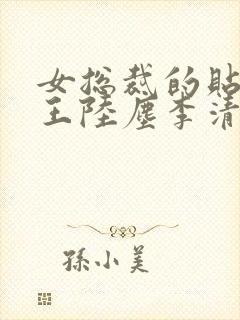 女总裁的贴
王陸塵李清
孫小美